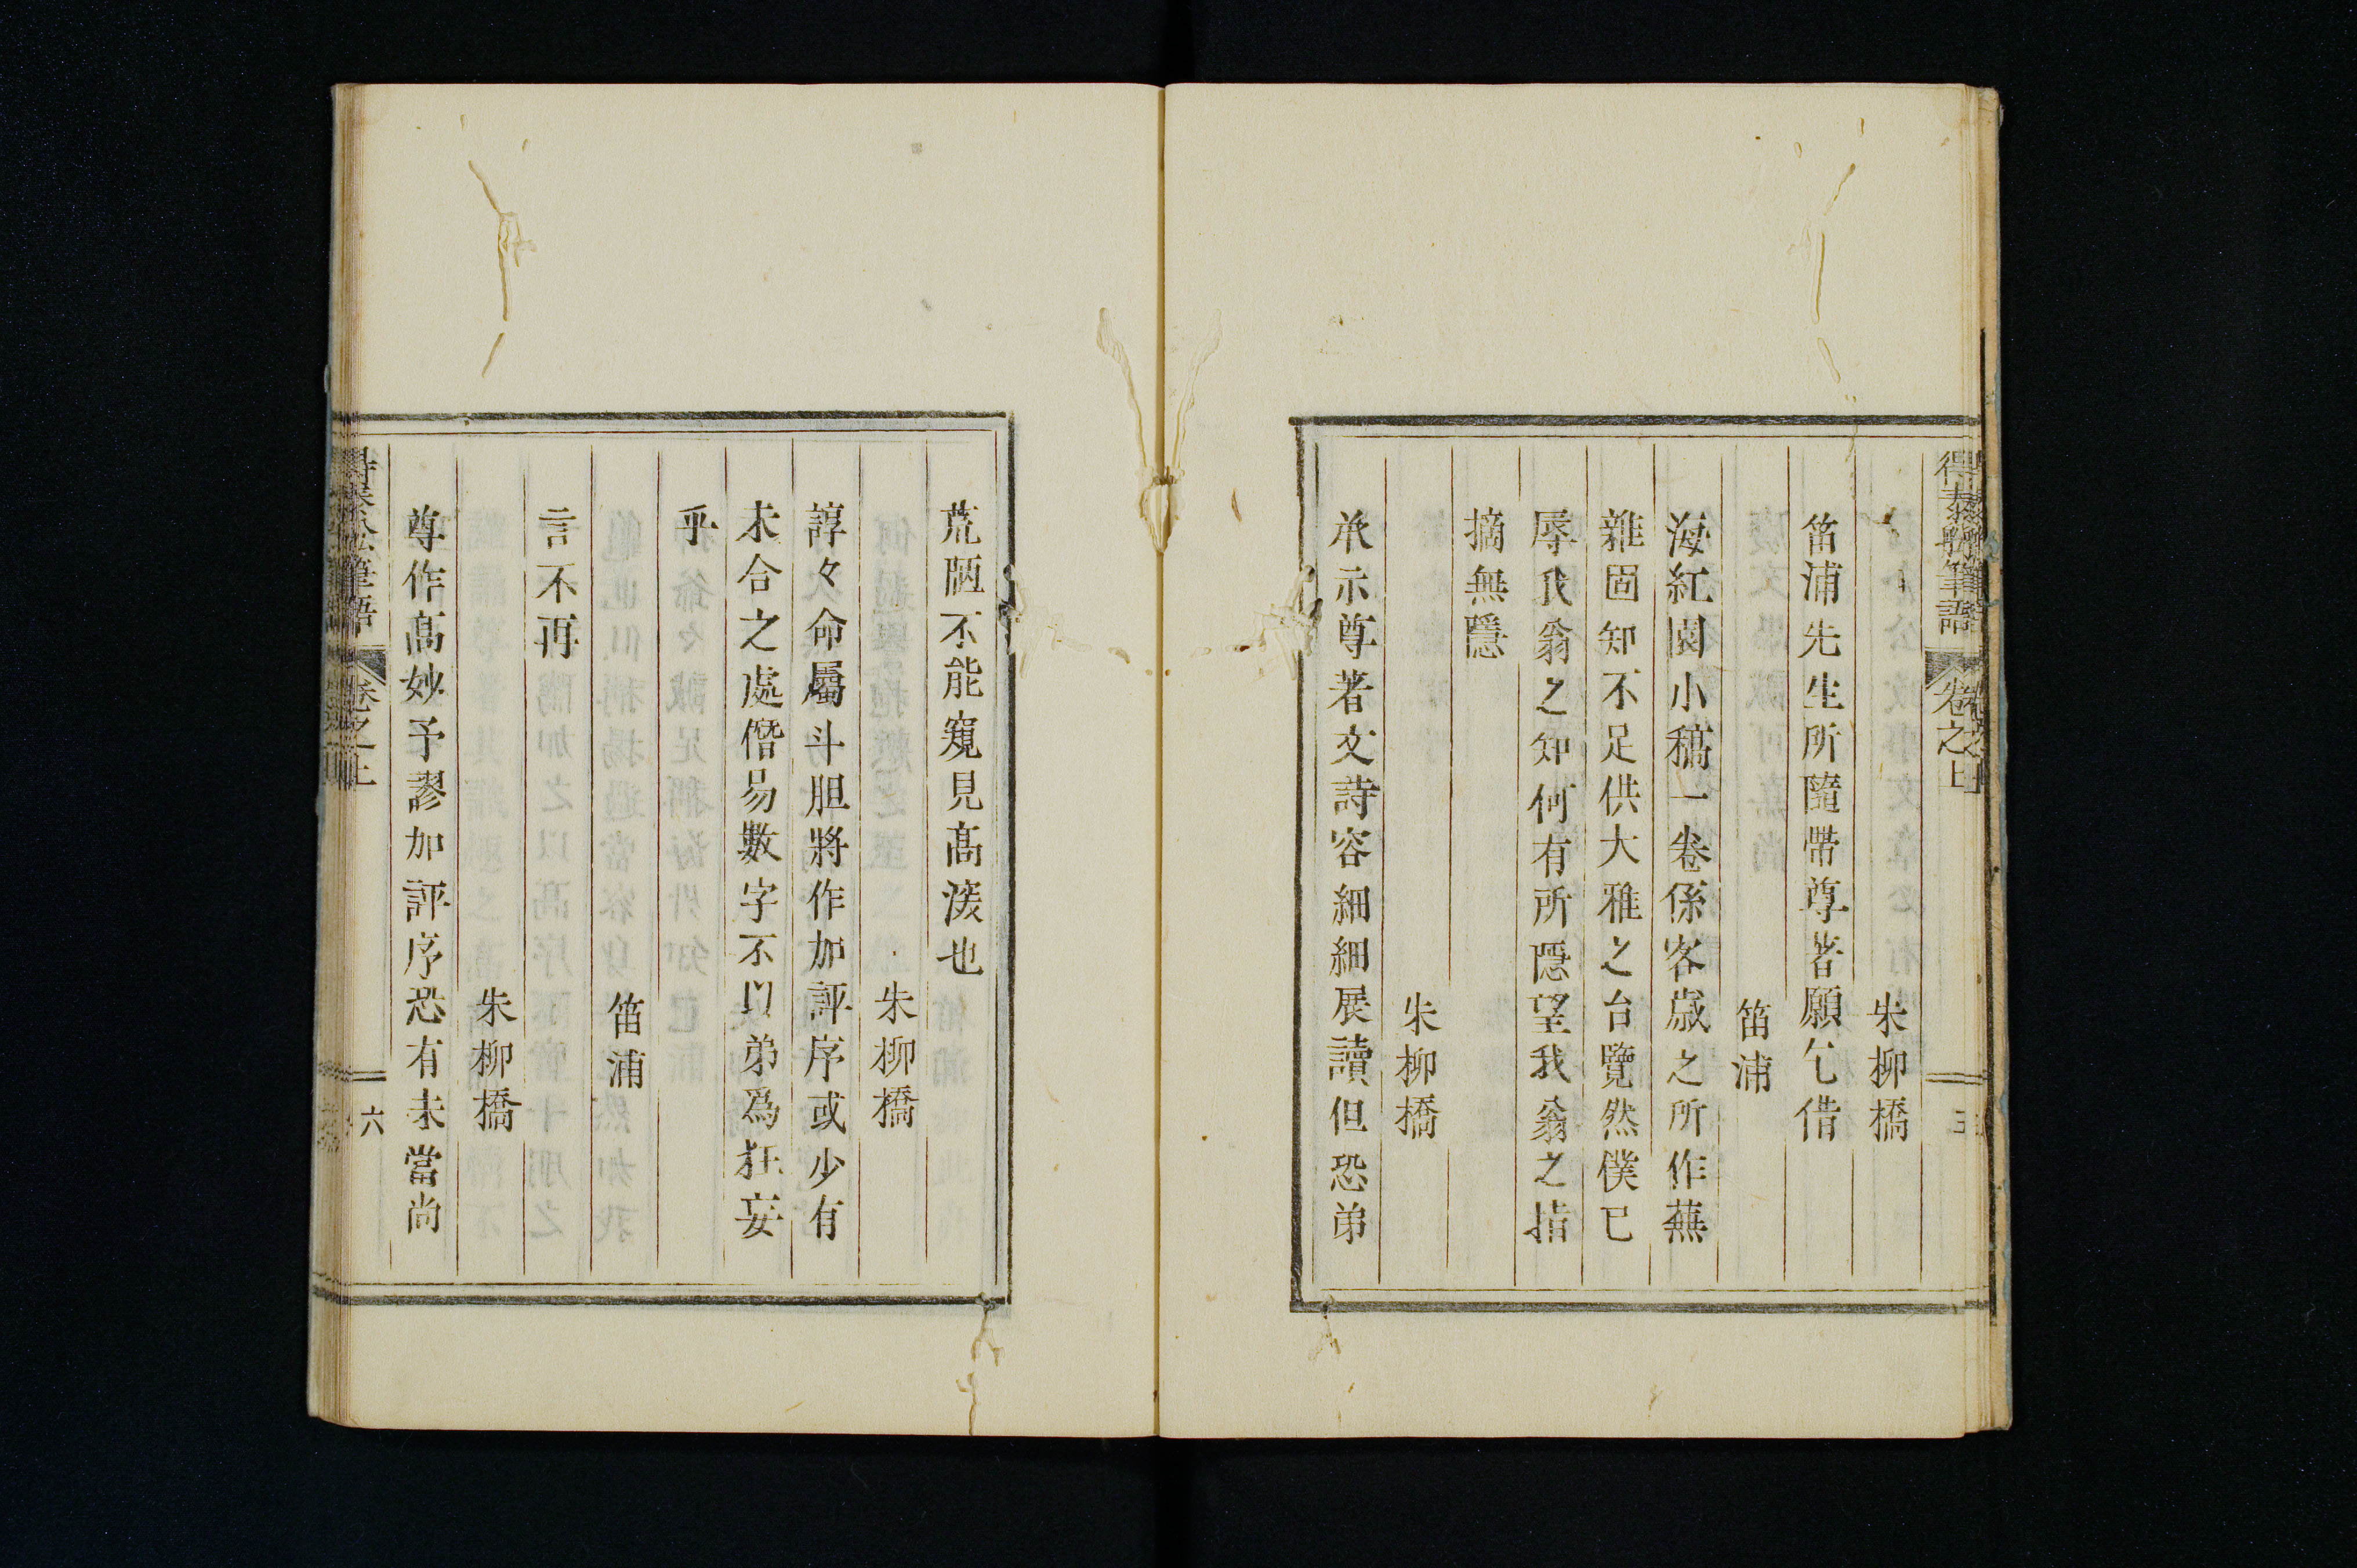 得泰船筆語 卷之上
朱柳橋
笛浦先生所隨帶尊著願乞借
笛浦
海紅園小稿一卷係客歲之所作蕪
雜固知不足供大雅之台覽然僕已
辱我翁之知何有所隱望我翁之指
摘無隱
朱柳橋
承示尊著文詩容細細展讀但恐弟
荒陋不能窺見高深也
朱柳橋
諄々命屬斗胆將作加評序或少有
未合之處僭易數字不以弟爲狂妄
乎
笛浦
言不再
朱柳橋
尊作高妙予謬加評序恐有未當尚
得泰船筆語 卷之上 六